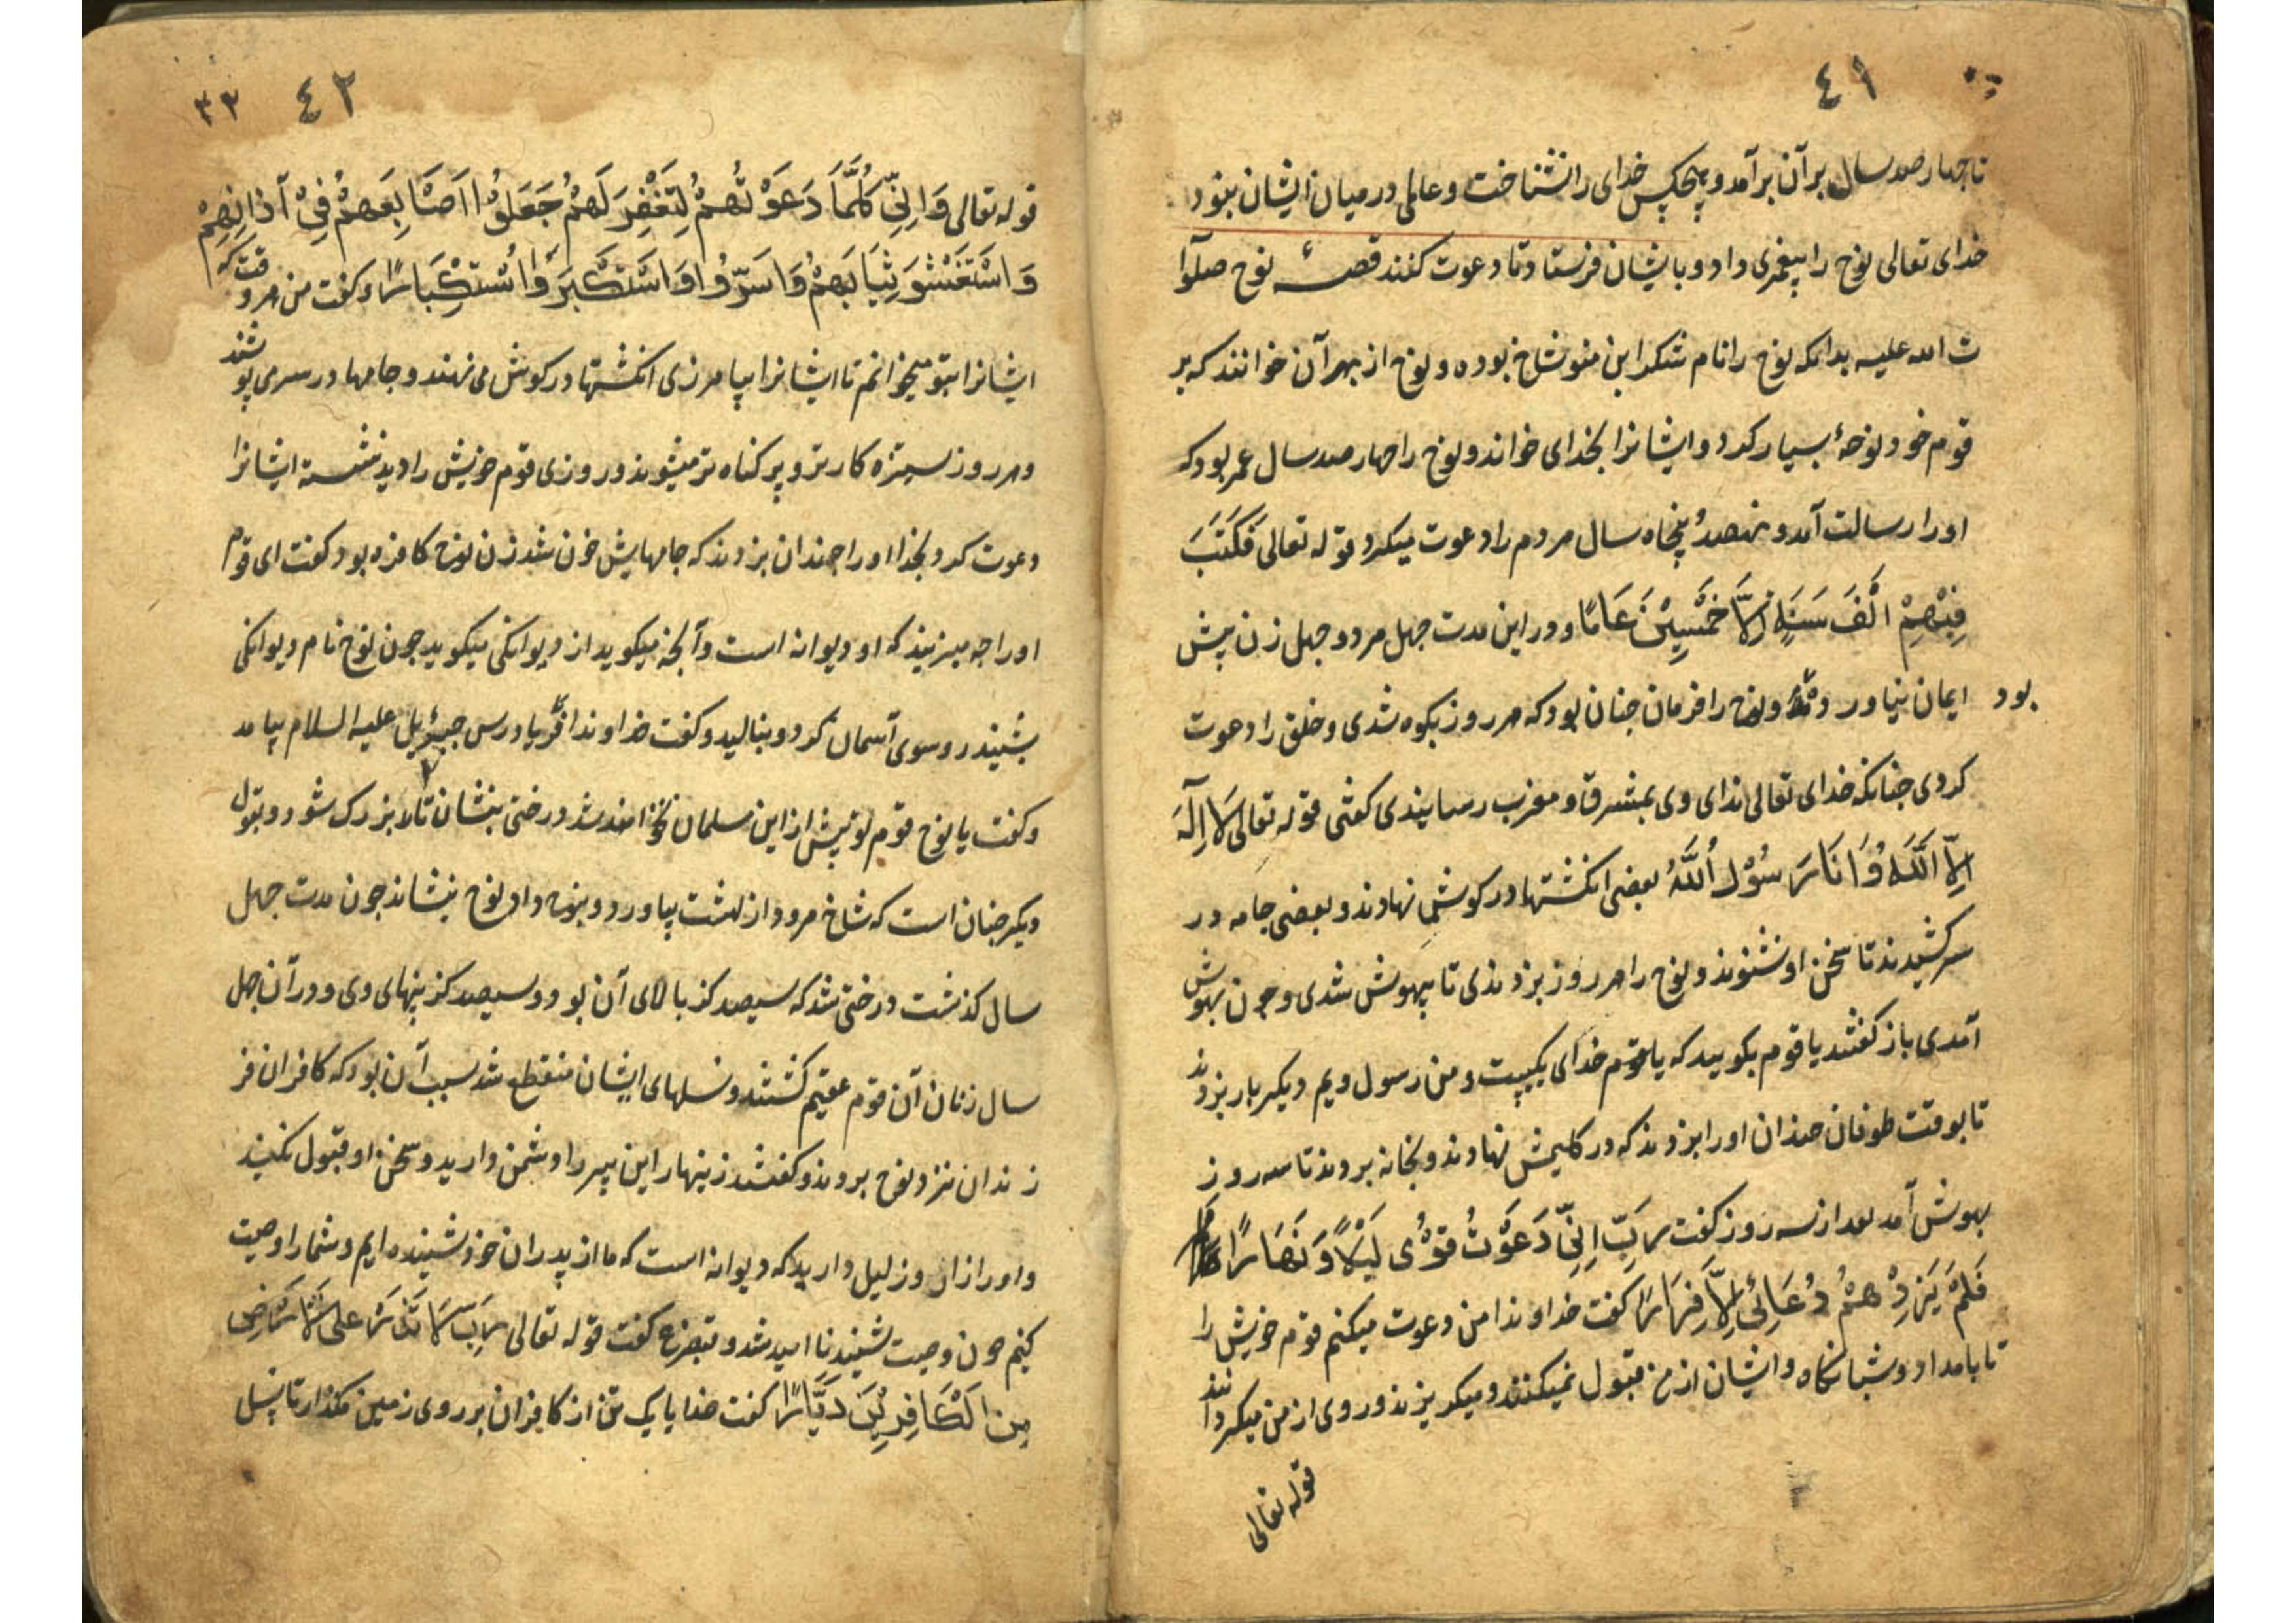 ٤١
تا چهار صد سال بر آن بر آمد و هیچکس خدای را نشناخت و عالمی در میان ایشان نبود
خدای تعالی نوح را پیغمبری داد و بایشان فرستاد تا دعوت کنند قصهٔ نوح صلوا
ت الله علیه بدانکه نوح را نام شکر ابن متوشلخ بوده و نوح از بهر آن خوانند که بر
قوم خود نوحهٔ بسیار کرد و ایشانرا بخدای خواند و نوح را چهار صد سال عمر بود که
او را رسالت آمد و نهصد و پنجاه سال مردم را دعوت میکرد قوله تعالی فَلَبِثَ
فِیْهِمْ اَلْفَ سَنَةٍ اِلَّا خَمْسِیْنَ عَامًا و در این مدت چهل مرد و چهل زن پیش
ایمان نیاورد و نوح را فرمان چنان بود که هر روز بکوه شدی و خلق را دعوت
بود
کردی چنانکه خدای تعالی ندای وی بمشرق و مغرب رسانیدی گفتی قوله تعالی لَا اِلٰهَ
اِلَّا اللّٰهُ وَ اَنَا رَسُوْلُ اللّٰهُ بعضی انکشتها در کوشها نهادند و بعضی جامه در
سر کشیدند تا سخن او نشنوند و نوح را هر روز بزدندی تا بیهوش شدی و چون بهوش
آمدی باز گفتی یا قوم بکویید که خدای یکیست و من رسول ویم دیکر بار بزدند
تا بوقت طوفان چندان او را بزدند که در کلیمش نهادند و بخانه بردند تا سه روز
بهوش آمد بعد از سه روز کفت رَبِّ اِنِّیْ دَعَوْتُ قَوْمِی لَیْلًا وَ نَهَارًا
فَلَمْ یَزِدْهُمْ دُعَائِیْ اِلَّا فِرَارًا کفت خداوندا من دعوت میکنم قوم خویش را
تا بامداد و شبانکاه و ایشان از من قبول نمیکنند و میکریزند و روی از من میکردانند
قوله تعالی
٤٢ ٣٢
قوله تعالی وَ اِنِّیْ کُلَّمَا دَعَوْتُهُمْ لِتَغْفِرَ لَهُمْ جَعَلُوْا اَصَابِعَهُمْ فِیْ آذَانِهِمْ
وَ اسْتَغْشَوْ ثِیَابَهُمْ وَ اَسَرُّوْا وَ اسْتَکْبَرُوا اسْتِکْبَارًا و کفت من هر وقت که
ایشانرا بتو میخوانم تا ایشانرا بیامرزی انکشتها در کوش می نهند و جامها در سر می پوشند
و هر روز ستیزه کارتر و پر کناه تر میشوند و روزی قوم خویش را دید نشسته ایشانرا
دعوت کرد بخدا او را چندان بزدند که جامهایش خون شد زن نوح کافره بود کفت ای قوم
او را چه میزنید که او دیوانه است و آنچه میکوید از دیوانکی میکوید چون نوح نام دیوانکی
بشنید رو سوی آسمان کرد و بنالید و کفت خداوندا فریاد رس جبرئیل علیه السلام بیامد
و کفت یا نوح قوم تو پیش از این مسلمان نخواهند شد درختی بنشان تا بزرک شود و بقول
دیکر چنان است که شاخ مرود از بهشت بیاورد و بنوح داد نوح بنشاند چون مدت چهل
سال کذشت درختی شد که سیصد کز بالای آن بود و سیصد کز پهنای وی و در آن چهل
سال زنان آن قوم عقیم کشتند و نسلهای ایشان منقطع شد سبب آن بود که کافران فر
زندان نزد نوح بردند و کفتند زینهار این پیر را دشمن دارید و سخن او قبول نکنید
و او را زار و ذلیل دارید که دیوانه است که ما از پدران خود شنیده ایم و شما را وصیت
کنیم چون وصیت شنید نا امید شد و بتضرع کفت قوله تعالی رَبِّ لَا تَذَرْ عَلَی الْاَرْضِ
مِنَ الْکَافِرِیْنَ دَیَّارًا کفت خدایا یک تن از کافران بر روی زمین مکذار تا نسل